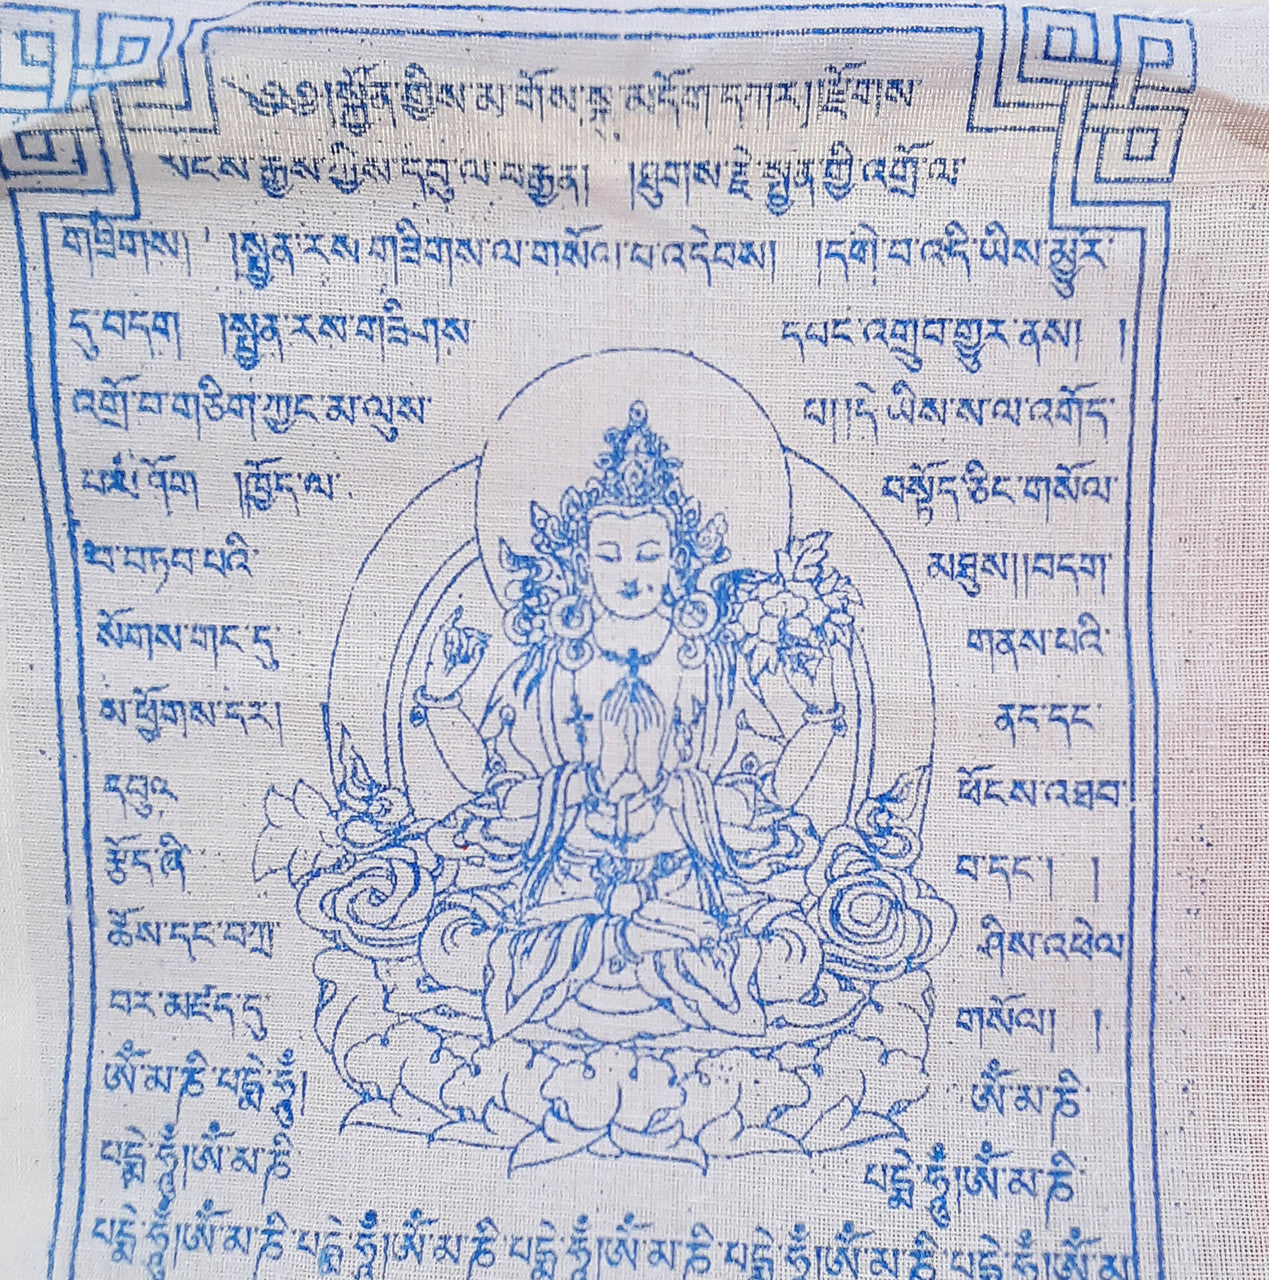 ༄༅། །སྐྱོན་གྱིས་མ་གོས་སྐུ་མདོག་དཀར། །རྫོགས་
སངས་རྒྱས་ཀྱིས་དབུ་ལ་བརྒྱན། །ཐུགས་རྗེ་སྤྱན་གྱི་འགྲོ་ལ་
གཟིགས། །སྤྱན་རས་གཟིགས་ལ་གསོལ་བ་འདེབས། །དགེ་བ་འདི་ཡིས་མྱུར་
དུ་བདག །སྤྱན་རས་གཟིགས་ དབང་འགྲུབ་གྱུར་ནས། །
འགྲོ་བ་གཅིག་ཀྱང་མ་ལུས་ པ། །དེ་ཡིས་ས་ལ་འགོད་
པར་ཤོག །ཁྱོད་ལ་ བསྟོད་ཅིང་གསོལ་
བ་བཏབ་པའི་ མཐུས། །བདག་
སོགས་གང་དུ་ གནས་པའི་
ས་ཕྱོགས་དར། ནད་དང་
དབུལ་ ཕོངས་འཐབ་
རྩོད་ཞི་ བ་དང་། །
ཆོས་དང་བཀྲ་ ཤིས་འཕེལ་
བར་མཛད་དུ་ གསོལ། །
ཨོཾ་མ་ཎི་པདྨེ་ཧཱུྃ། ཨོཾ་མ་ཎི་
པདྨེ་ཧཱུྃ།ཨོཾ་མ་ཎི་ པདྨེ་ཧཱུྃ།ཨོཾ་མ་ཎི་
པདྨེ་ཧཱུྃ།ཨོཾ་མ་ཎི་པདྨེ་ཧཱུྃ།ཨོཾ་མ་ཎི་པདྨེ་ཧཱུྃ།ཨོཾ་མ་ཎི་པདྨེ་ཧཱུྃ།ཨོཾ་མ་ཎི་པདྨེ་ཧཱུྃ།ཨོཾ་མ་